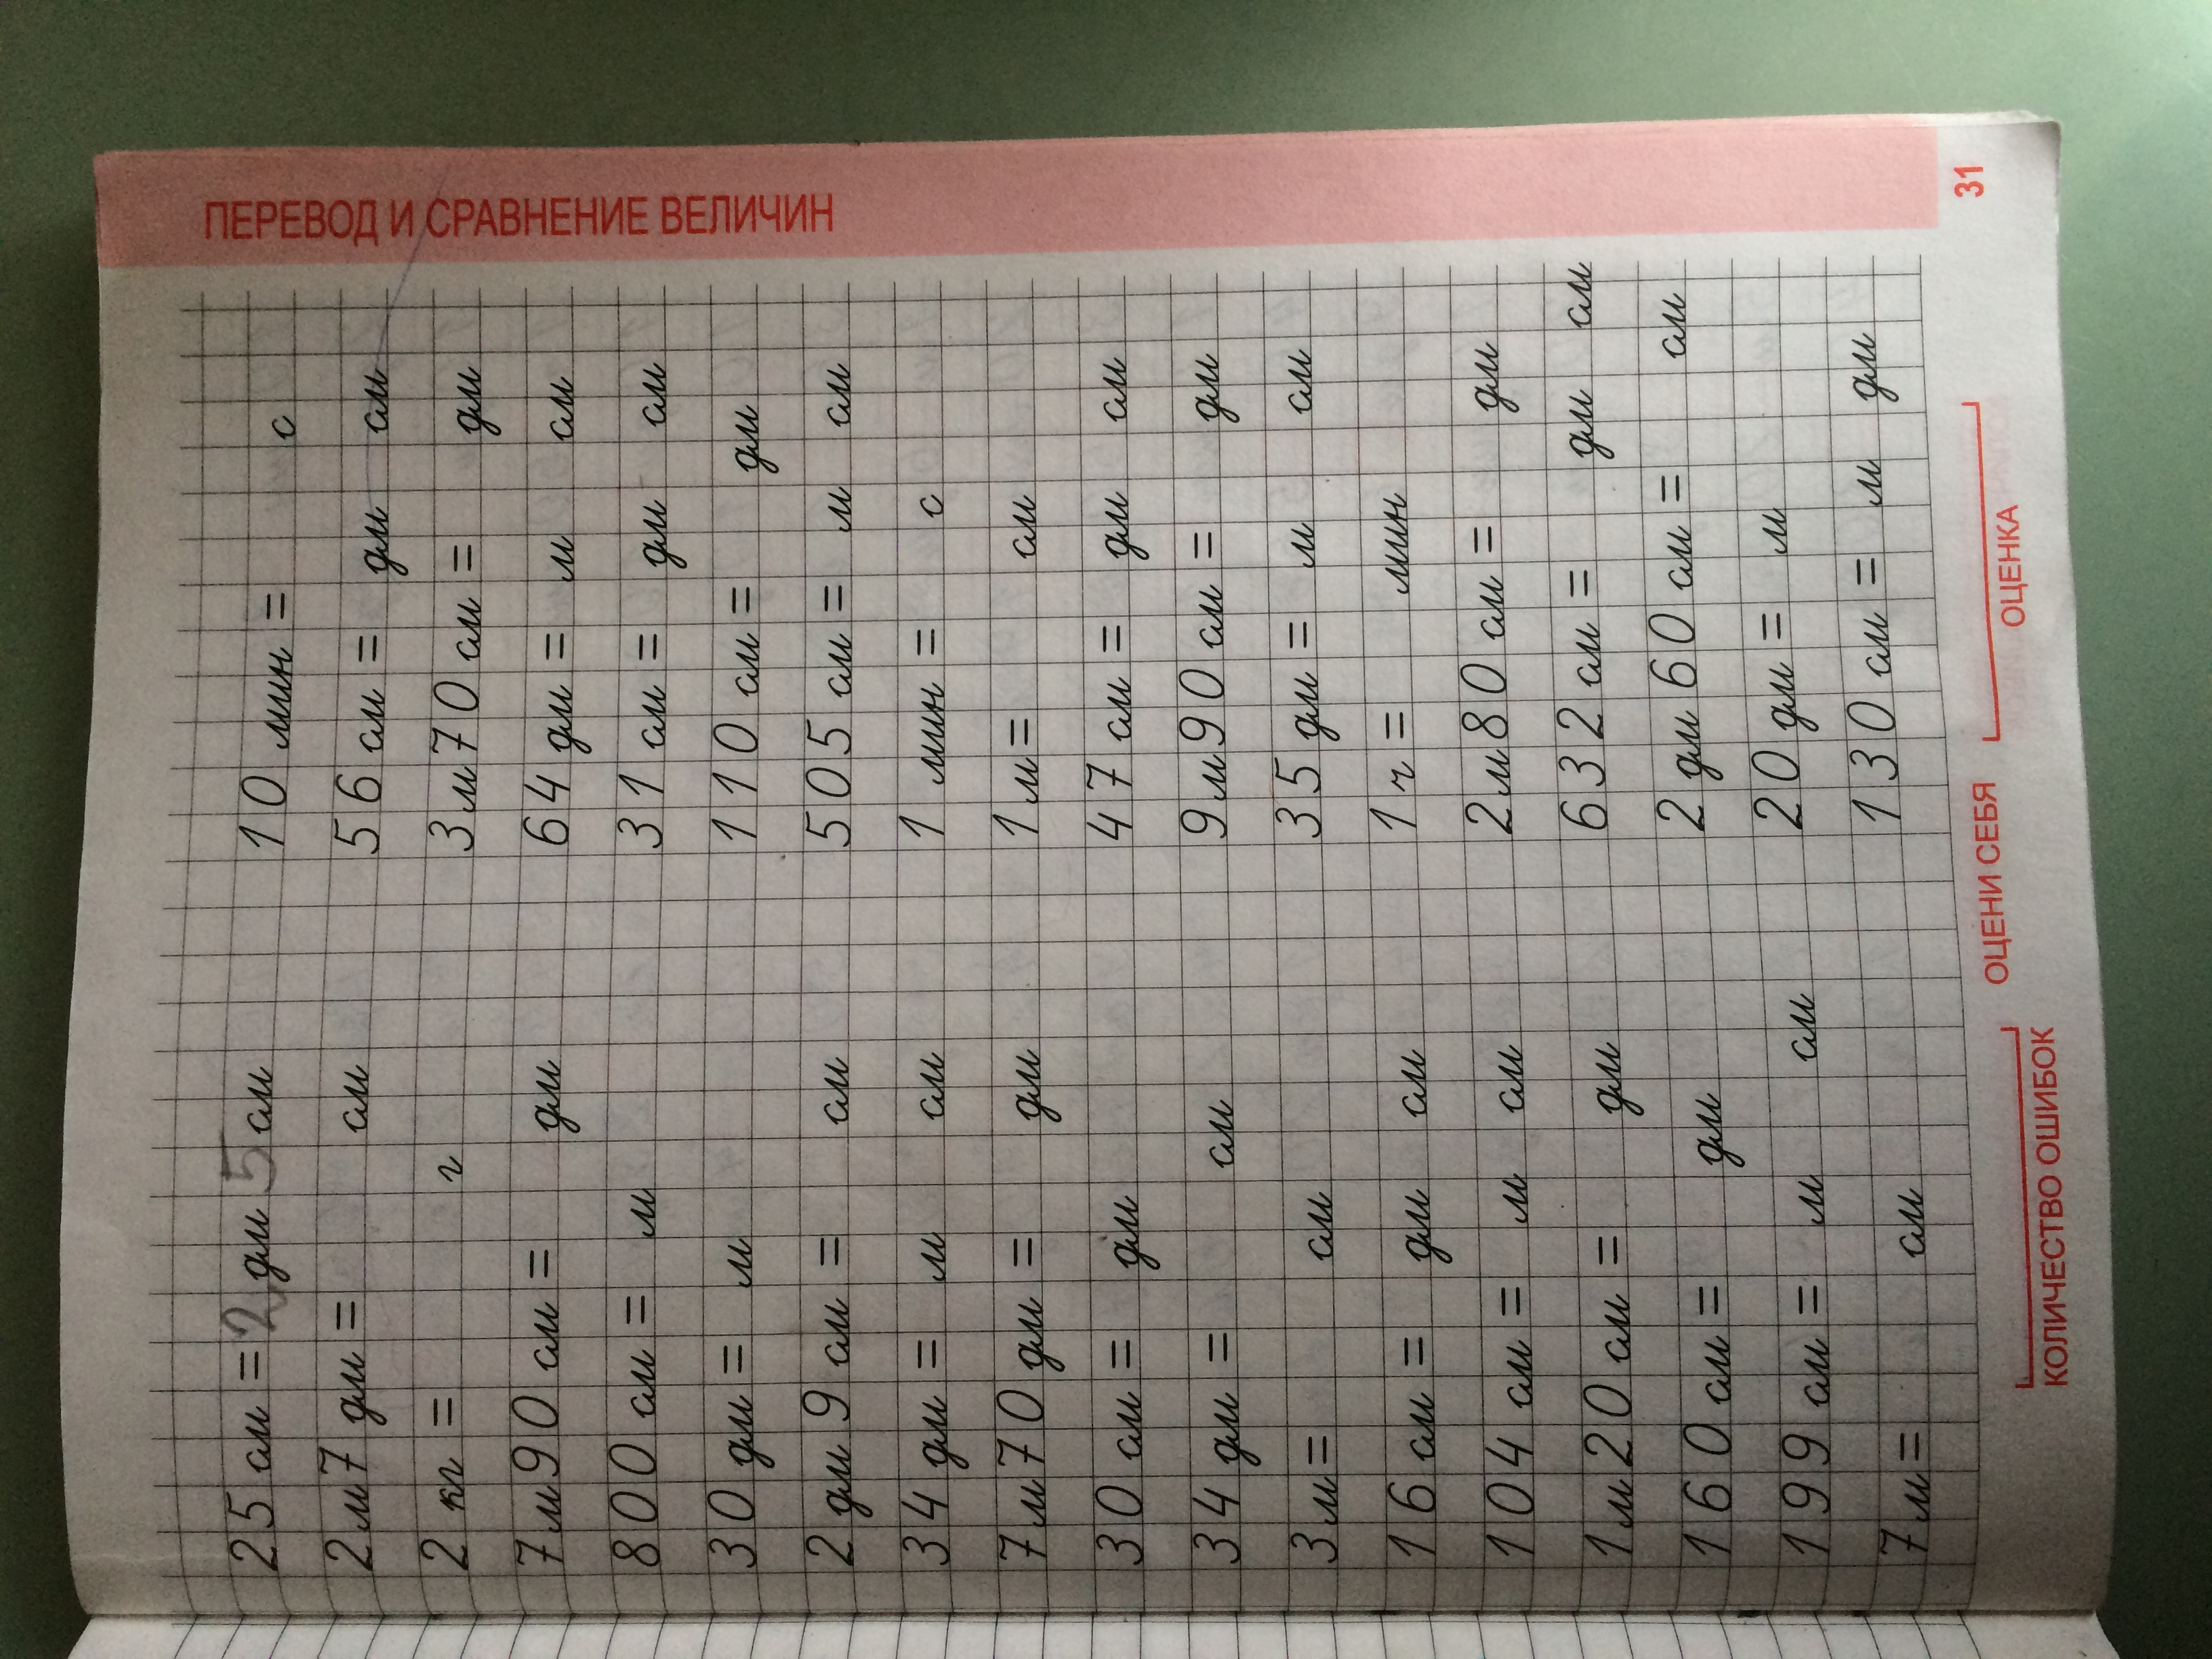 ПЕРЕВОД И СРАВНЕНИЕ ВЕЛИЧИН
25 см = 2 дм 5 см
2 м 7 дм = см
2 кг = г
7 м 90 см = дм
800 см = м
30 дм = м
2 дм 9 см = см
34 дм = м см
7 м 70 дм = дм
30 см = дм
34 дм = см
3 м = см
16 см = дм см
104 см = м см
1 м 20 см = дм
160 см = дм
199 см = м см
7 м = см
10 мин = с
56 см = дм см
3 м 70 см = дм
64 дм = м см
31 см = дм см
110 см = дм
505 см = м см
1 мин = с
1 м = см
47 см = дм см
9 м 90 см = дм
35 дм = м см
1 ч = мин
2 м 80 см = дм
632 см = дм см
2 дм 60 см = см
20 дм = м
130 см = м дм
КОЛИЧЕСТВО ОШИБОК ОЦЕНИ СЕБЯ ОЦЕНКА
31